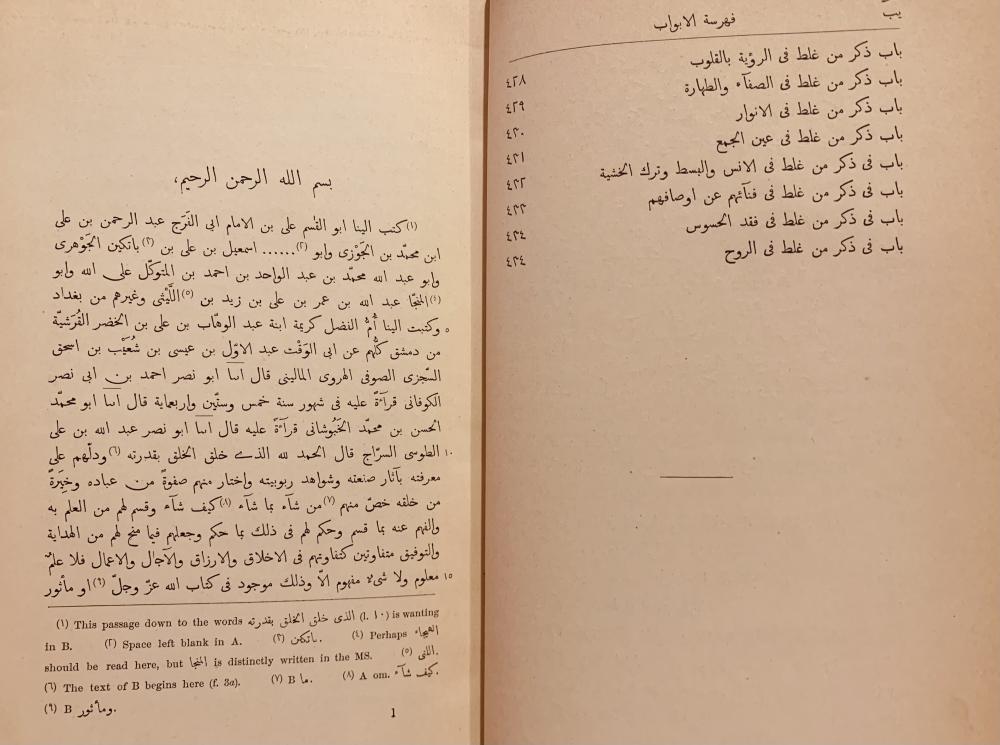 يب
فهرسة الابواب
باب ذكر من غلط فى الرؤية بالقلوب
باب ذكر من غلط فى الصفآء والطهارة ٤٢٨
باب ذكر من غلط فى الانوار ٤٢٩
باب ذكر من غلط فى عين الجمع ٤٣٠
باب فى ذكر من غلط فى الانس والبسط وترك الخشية ٤٣١
باب فى ذكر من غلط فى فنآئهم عن اوصافهم ٤٣٢
باب فى ذكر من غلط فى فقد الحسوس ٤٣٣
باب فى ذكر من غلط فى الروح ٤٣٤
٤٣٤
بسم الله الرحمن الرحيم،
(١)كتب الينا ابو القٰسم على بن الامام ابى الفَرَج عبد الرحمن بن على
ابن محمّد بن الجَوْزى وابو (٢)...... اسمعيل بن على بن (٣)باتكين الجَوْهرى
وابو عبد الله محمّد بن عبد الواحد بن احمد بن المتوكّل على الله وابو
(٤)المنجّا عبد الله بن عمر بن على بن زيد بن (٥)اللَّيْثى وغيرهم من بغداد
٥ وكتبت الينا أُمُّ الفضل كريمة ابنة عبد الوهّاب بن على بن الخضر القُرَشيّة
من دمشق كلُّهم عن ابى الوَقْت عبد الاوّل بن عيسى بن شُعَيْب بن اسحق
السّجزى الصوفى الهروى المالينى قال انا ابو نصر احمد بن ابى نصر
الكوفانى قرآءةً عليه فى شهور سنة خمس وستّين واربعماية قال انا ابو محمّد
الحسن بن محمّد الخَبُوشانى قرآءةً عليه قال انا ابو نصر عبد الله بن على
١٠ الطوسى السرّاج قال الحمد لله الذى خلق الخلق بقدرته (٦)ودلّهم على
معرفته بآثار صنعته وشواهد ربوبيته واختار منهم صفوةً من عباده وخِيَرةً
من خلقه خصّ منهم (٧)من شآء بما شآء (٨)كيف شآء وقسم لهم من العلم به
والفهم عنه بما قسم وحكم لهم فى ذلك بما حكم وجعلهم فيما منح لهم من الهداية
والتوفيق متفاوتين كتفاوتهم فى الاخلاق والارزاق والآجال والاعمال فلا علمٌ
١٥ معلوم ولا شىء مفهوم الّا وذلك موجود فى كتاب الله عزّ وجلّ (٩)او مأثور
(١) This passage down to the words الذى خلق الخلق بقدرته (l. ١٠) is wanting
in B. (٢) Space left blank in A. (٣) . (٤) Perhaps الهيجاء
should be read here, but المنجا is distinctly written in the MS. (٥) اللتى.
(٦) The text of B begins here (f. 3a). (٧) B ما. (٨) A om. كيف شآء.
(٩) B ومأثور.
1